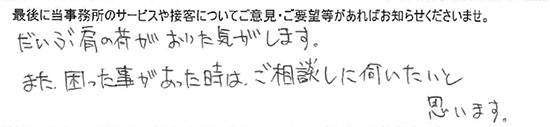 最後に当事務所のサービスや接客についてご意見・ご要望等があればお知らせくださいませ。
だいぶ肩の荷がおりた気がします。
また、困った事があった時は、ご相談しに伺いたいと
思います。